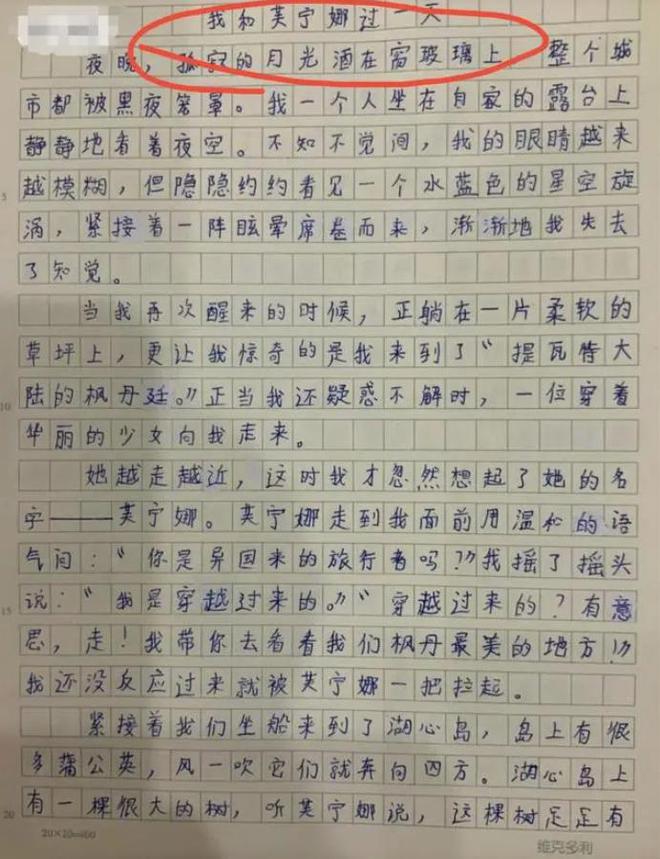 我和芙宁娜过一天
夜晚，孤寂的月光洒在窗玻璃上 整个城
市都被黑夜笼罩。我一个人坐在自家的露台上
静静地看着夜空。不知不觉间，我的眼睛越来
5 越模糊，但隐隐约约看见一个水蓝色的星空旋
涡，紧接着一阵眩晕席卷而来，渐渐地我失去
了知觉。
当我再次醒来的时候，正躺在一片柔软的
草坪上，更让我惊奇的是我来到了“提瓦特大
10 陆的枫丹廷。”正当我还疑惑不解时，一位穿着
华丽的少女向我走来。
她越走越近，这时我才忽然想起了她的名
字——芙宁娜。芙宁娜走到我面前用温和的语
气问：“你是异国来的旅行者吗？”我摇了摇头
15 说：“我是穿越过来的。”“穿越过来的？有意
思，走！我带你去看看我们枫丹最美的地方！”
我还没反应过来就被芙宁娜一把拉起。
紧接着我们坐船来到了湖心岛，岛上有很
多蒲公英，风一吹它们就奔向四方。湖心岛上
20 有一棵很大的树，听芙宁娜说，这棵树足足有
20×20=400 维克多利